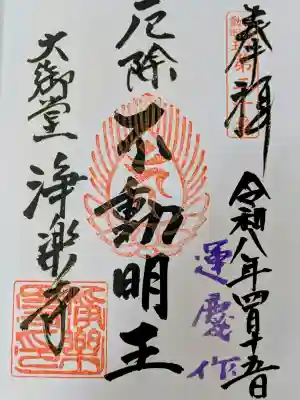 奉拝
令和八年四月十五日
運慶作
厄除
不動明王
大御堂
浄楽寺